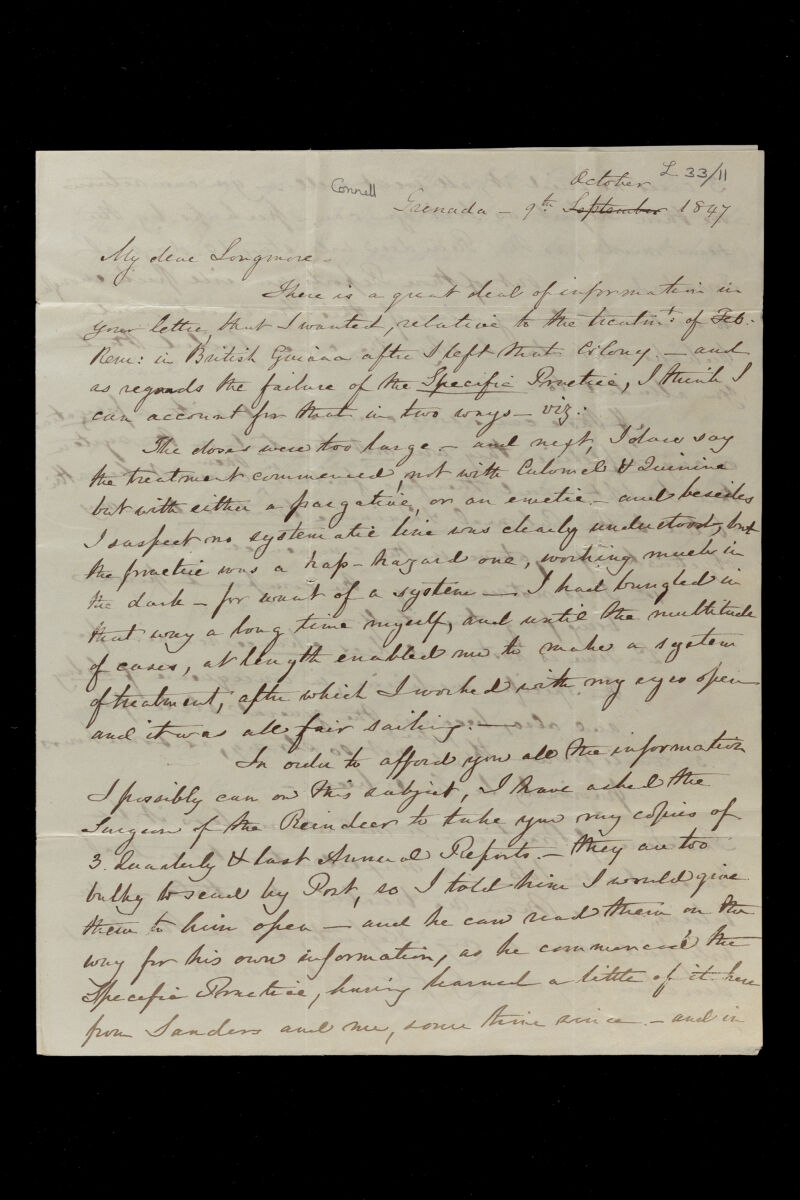 L 33/11
Connell
October
Grenada – 9th. September 1847
My dear Longmore –
There is a great deal of information in
your letter, that I wanted, relative to the treatmt. of Feb.
Rem: in British Guiana after I left that Colony – and
as regards the failure of the Specific Practice, I think I
can account for that in two ways – viz:
The doses were too large – and next, I dare say
the treatment commenced, not with Calomel & Quinine
but with either a purgative, or an emetic – and besides
I suspect no systematic line was clearly understood, but
the practice was a hap-hazard one, working much in
the dark – for want of a system – I had bungled in
that way a long time myself, and until the multitude
of cases, at length enabled me to make a system
of treatment, after which I worked with my eyes open
and it was all fair sailing. –
In order to afford you all the information
I possibly can on this subject, I have asked the
Surgeon of the Reindeer to take you my copies of
3. Quarterly & last Annual Reports. – they are too
bulky to send by Post, so I told him I would give
them to him open – and he can read them on the
way for his own information, as he commenced the
Specific Practice, having learned a little of it here
from Sanders and me, some time since – and in